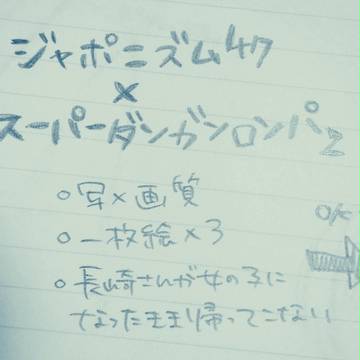 ジャポニズム47
×
スーパーダンガンロンパ2
○写×画質
○一枚絵×3
○長崎さんが女の子に
なったまま帰ってこない
O/K